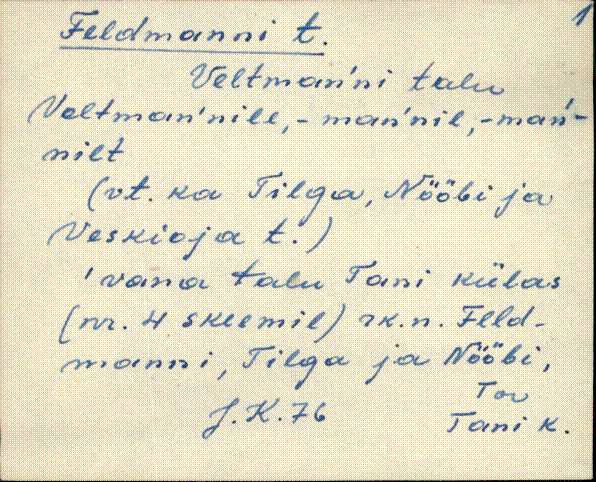 1
Feldmanni t.
Veltman'ni talu
Veltman'nile, -man'nil, -man'-
nilt
(vt. ka Tilga, Nööbi ja
Veskioja t.)
'vana talu Tani külas
(nr. 4 skeemil) rk.n. Feld-
manni, Tilga ja Nööbi,
J.K.76
Tor
Tani k.